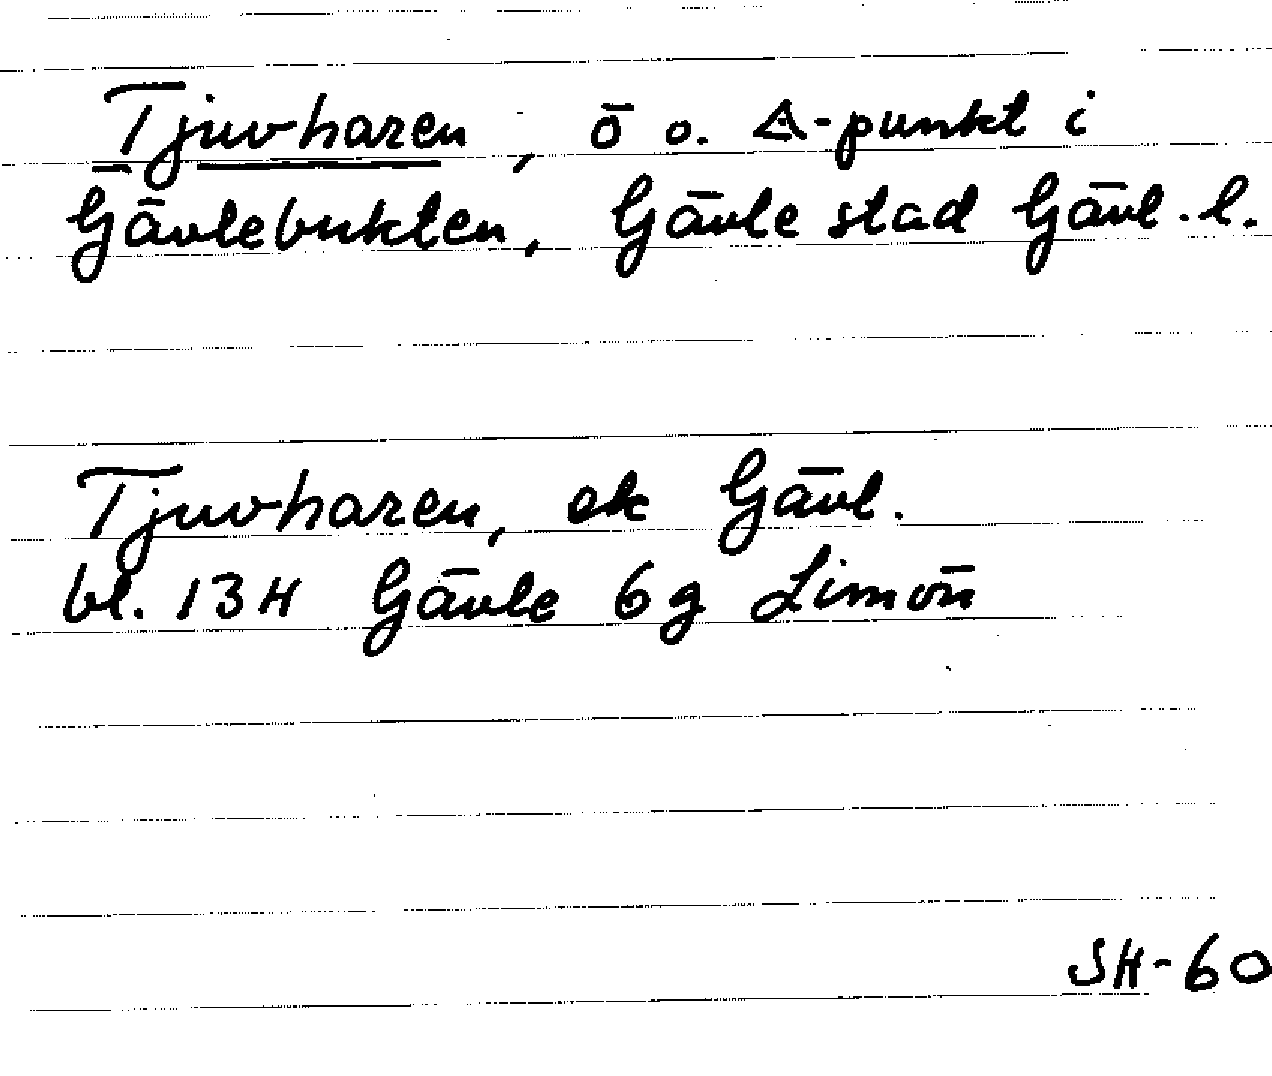 Tjuvharen, ö o. △-punkt i
Gävlebukten, Gävle stad Gävl. l.
Tjuvharen, ek Gävl.
bl. 13H Gävle 6g Limön
SH-60